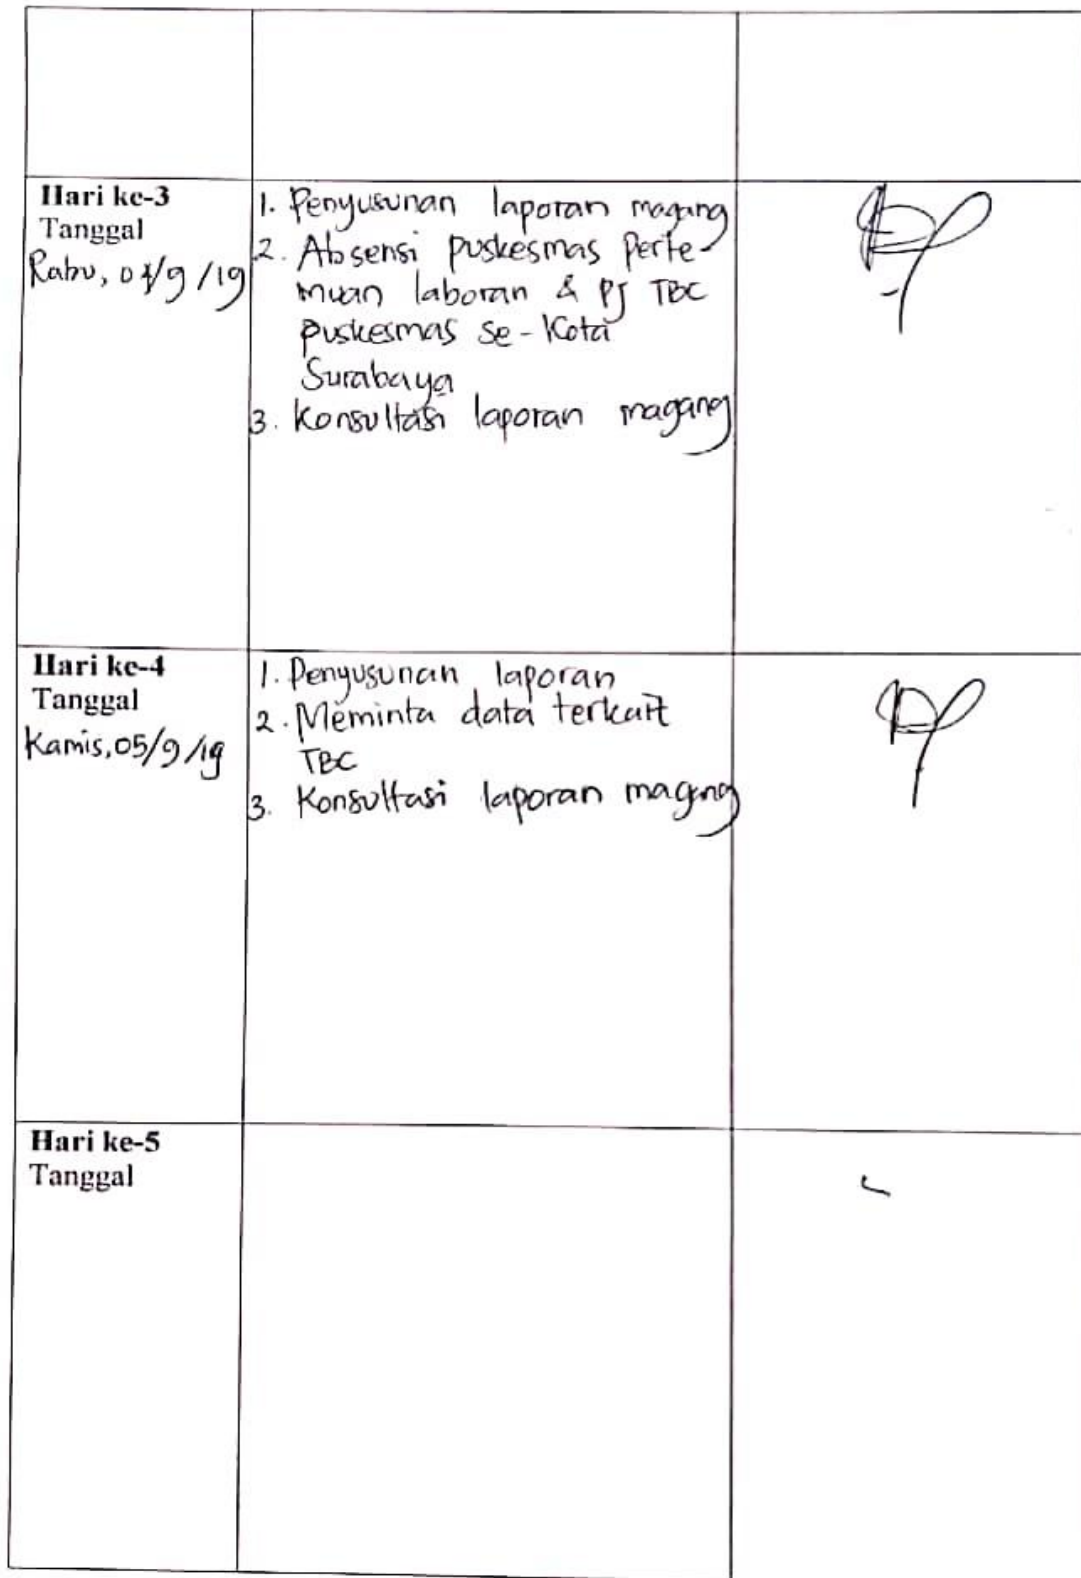 Hari ke-3
Tanggal
Rabu, 04/9/19
1. Penyusunan laporan magang
2. Absensi puskesmas Perte-
muan laboran & PJ TBC
puskesmas se-Kota
Surabaya
3. Konsultasi laporan magang
Hari ke-4
Tanggal
Kamis, 05/9/19
1. Penyusunan laporan
2. Meminta data terkait
TBC
3. Konsultasi laporan magang
Hari ke-5
Tanggal